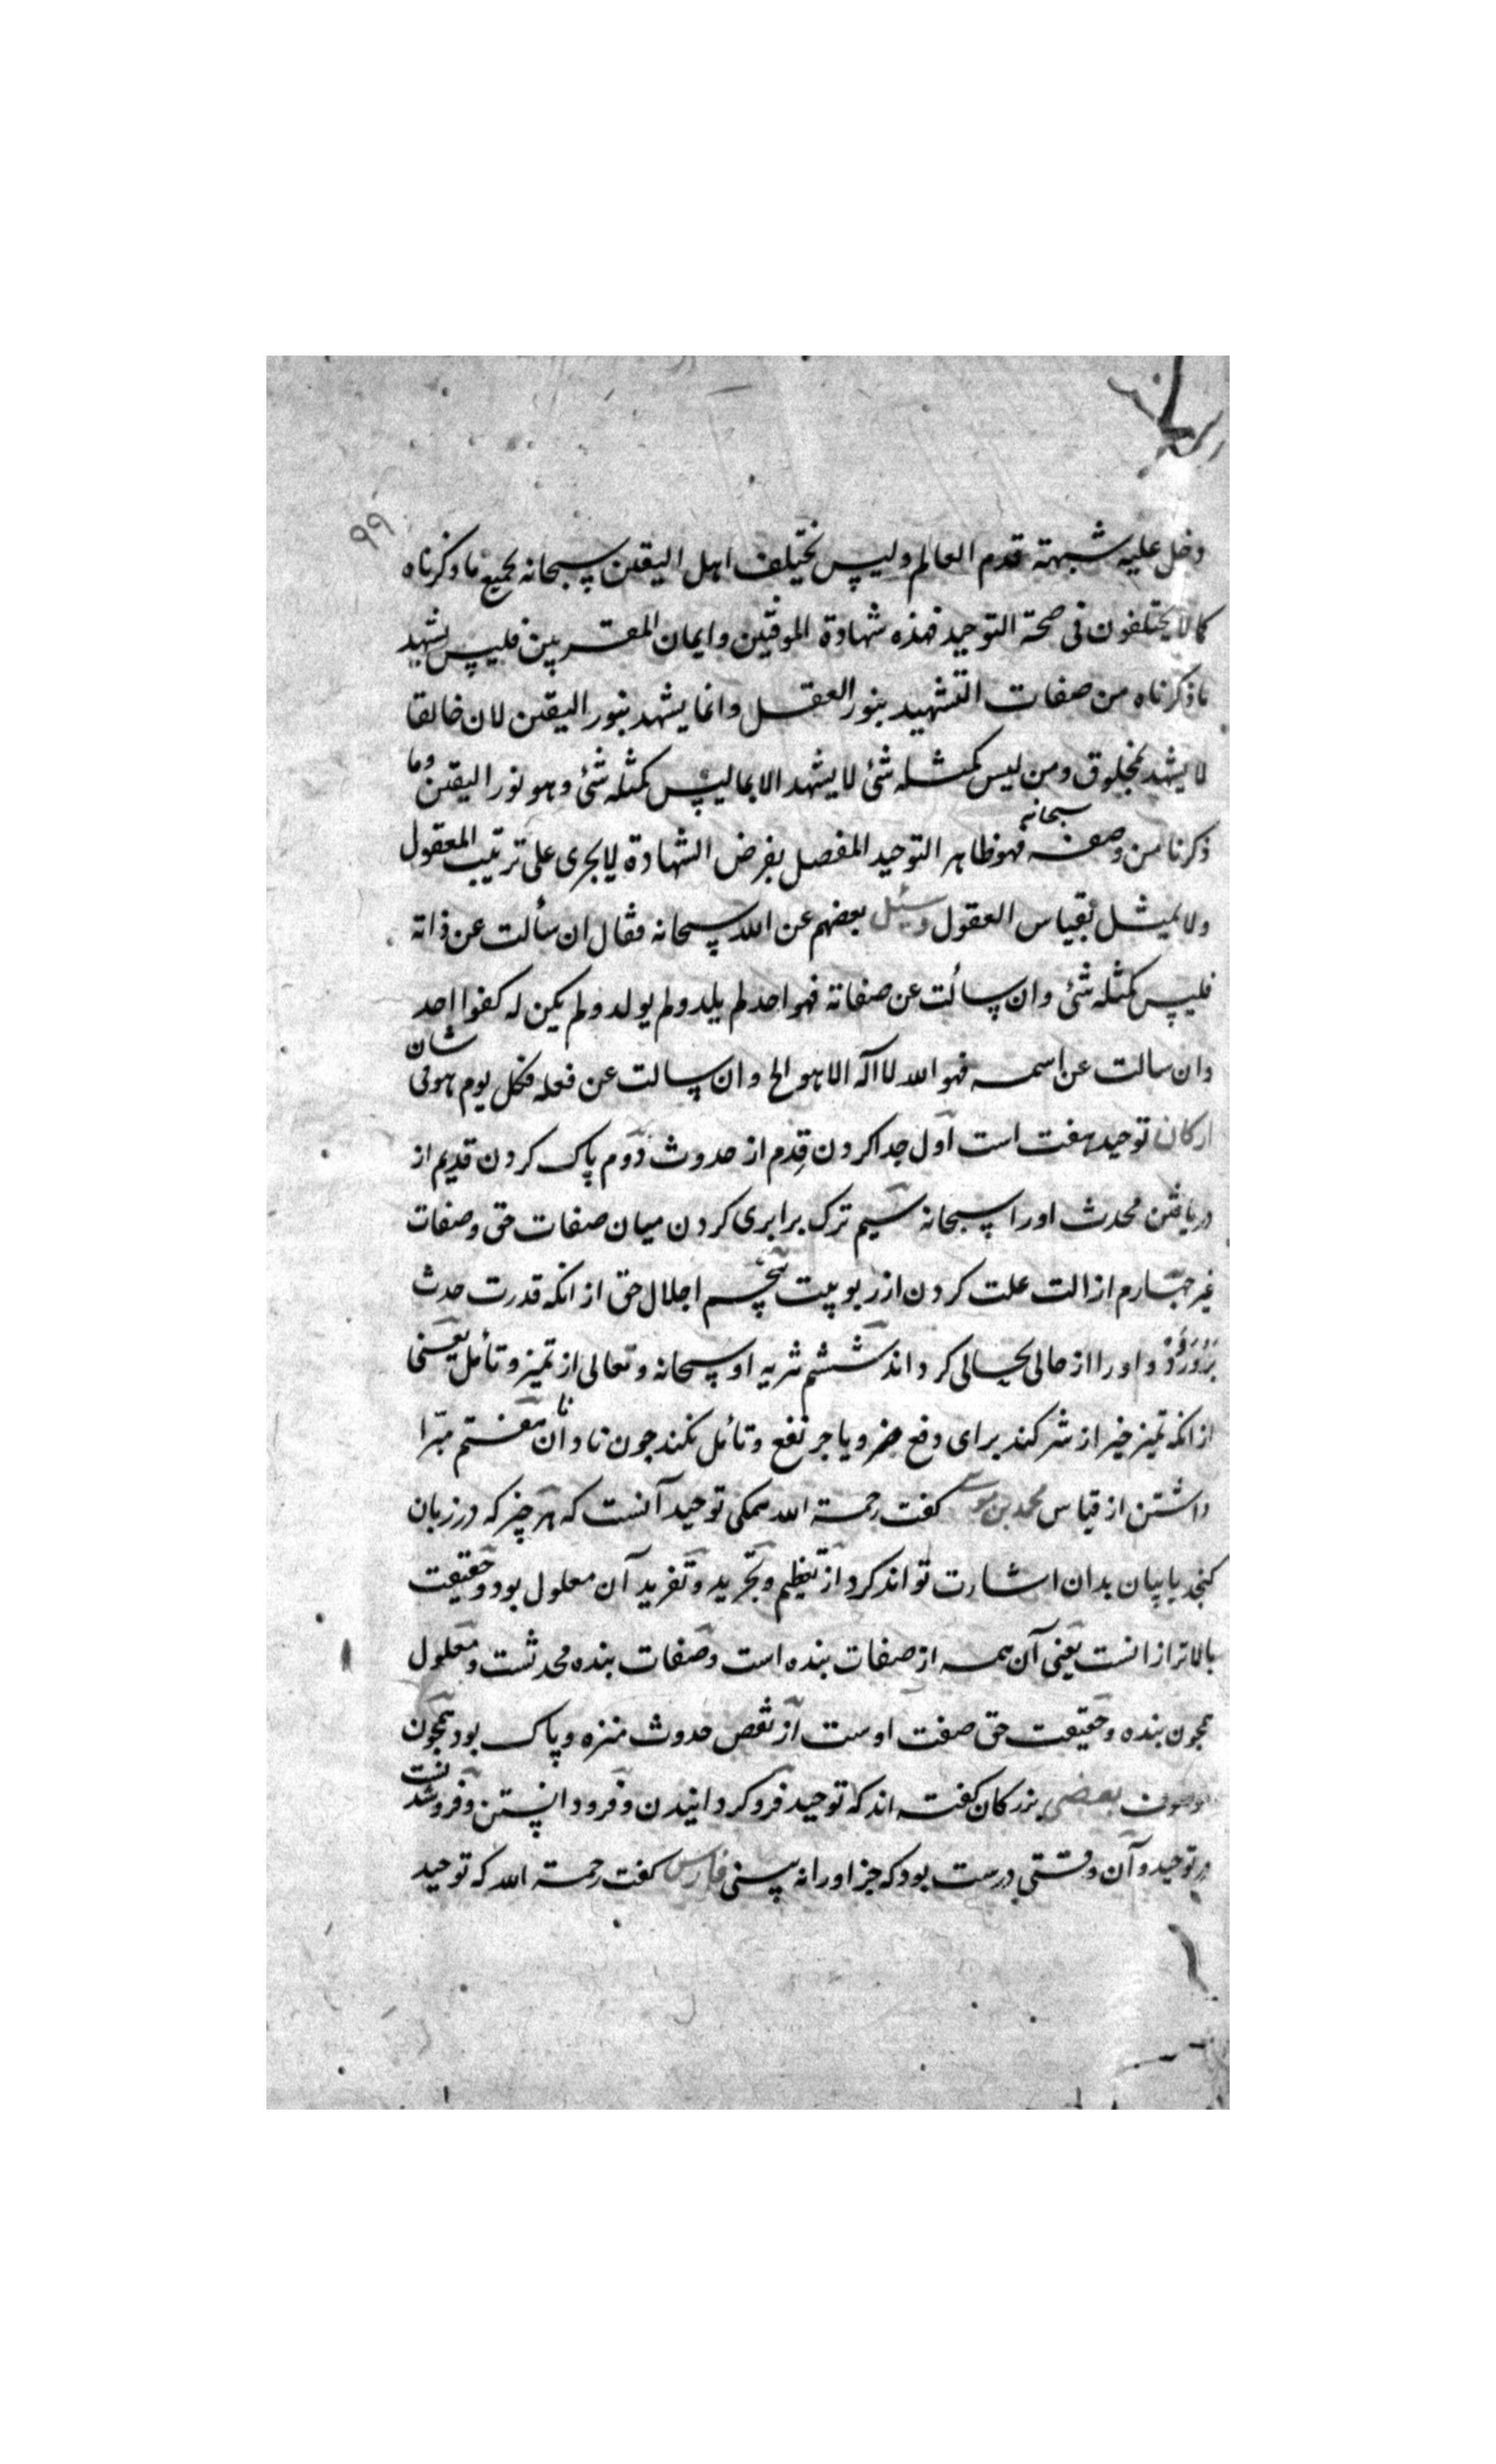 ۹۹
دخل علیه شبهته قدم العالم ولیس نختیلف اهل الیقین سبحانه بجمیع ما ذکرناه
کما لا یختلفون فی صحة التوحید فهذه شهادة الموقنین وایمان المقربین فلیس یشهد
ما ذکرناه من صفات التشهید بنور العقل وانما یشهد بنور الیقین لان خالقا
لا یشهد بمخلوق ومن لیس کمثله شئ لا یشهد الا بما لیس کمثله شئ وهو نور الیقین وما
ذکرنا من وصفه سبحانه فهو ظاهر التوحید المفصل بفرض الشهادة لا یجری علی ترتیب المعقول
ولا یمیثل بقیاس العقول وسئل بعضهم عن الله سبحانه فقال ان سألت عن ذاته
فلیس کمثله شئ وان سألت عن صفاته فهو احد لم یلد ولم یولد ولم یکن له کفوا احد
وان سالت عن اسمه فهو الله لا اله الا هو الخ وان سالت عن فعله فکل یوم هو فی شان
ارکان توحید هفت است اول جدا کردن قِدم از حدوث دوم پاک کردن قدیم از
دریافتن محدث اورا سبحانه سیم ترک برابری کردن میان صفات حق وصفات
غیر چهارم ازالت علت کردن از ربوبیت پنجم اجلال حق از انکه قدرت حدث
برورود و اورا از حالی بحالی کرداند ششم تنزیه او سبحانه وتعالی از تمیز وتأمل یعنی
از انکه تمیز خیر از شر کند برای دفع ضر ویا جر نفع وتأمل نکند چون نادانان هفتم مبرا
داشتن از قیاس محمد بن موسی کفت رحمة الله همکی توحید آنست که هر چیز که در زبان
کنجد یا بیان بدان اشارت تواند کرد از تعظیم وتجرید وتفرید آن معلول بود وحقیقت
بالاتر از انست یعنی آن همه از صفات بنده است وصفات بنده محدثست ومعلول
همچون بنده وحقیقت حق صفت اوست از نقص حدوث منزه وپاک بود همچون
موصوف بعضی بزرکان کفته اند که توحید فرو کردانیدن وفرود انستن وفرو شدنست
در توحید وآن وقتی درست بود که جز اورا نه بینی فارس کفت رحمة الله که توحید